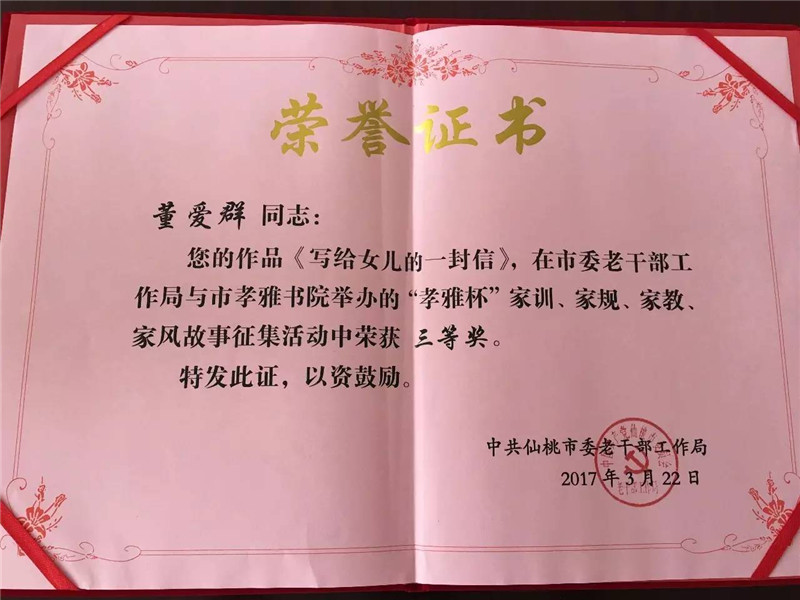 荣誉证书
董爱群 同志：
您的作品《写给女儿的一封信》，在市委老干部工
作局与市孝雅书院举办的“孝雅杯”家训、家规、家教、
家风故事征集活动中荣获 三等奖。
特发此证，以资鼓励。
中共仙桃市委老干部工作局
2017年3月22日